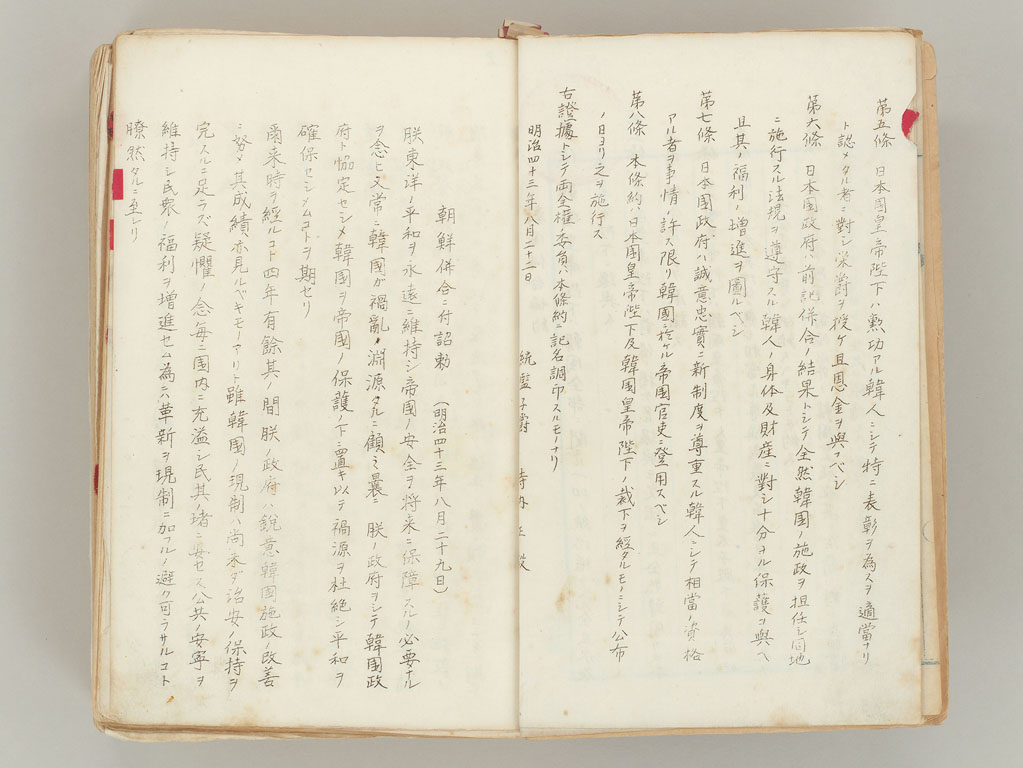 第五條　日本國皇帝陛下ハ勲功アル韓人ニシテ特ニ表彰ヲ為スヲ適當ナリ
ト認メタル者ニ對シ栄爵ヲ授ケ且恩金ヲ與フベシ
第六條　日本国政府ハ前記併合ノ結果トシテ全然韓國ノ施政ヲ担任シ同地
ニ施行スル法規ヲ遵守スル韓人ノ身体及財産ニ對シ十分ナル保護ヲ與ヘ
且其ノ福利ノ増進ヲ圖ルベシ
第七條　日本國政府ハ誠意忠實ニ新制度ヲ尊重スル韓人ニシテ相當ノ資格
アル者ヲ事情ノ許ス限リ韓國ニ於ケル帝國官吏ニ登用スベシ
第八條　本條約ハ日本国皇帝陛下及韓國皇帝陛下ノ裁下ヲ經タルモノニシテ公布
ノ日ヨリ之ヲ施行ス
右證據トシテ両全權委負ハ本條約ニ記名調印スルモノナリ
明治四十三年八月二十二日
統監子爵　寺内正毅
朝鮮併合ニ付詔勅　（明治四十三年八月二十九日）
朕東洋ノ平和ヲ永遠ニ維持シ帝國ノ安全ヲ将来ニ保障スルノ必要ナル
ヲ念ヒ又常ニ韓國ガ禍亂ノ淵源タルニ顧ミ曩ニ　朕ノ政府ヲシテ韓國政
府ト協定セシメ韓國ヲ帝國ノ保護ノ下ニ置キ以テ禍源ヲ杜絶シ平和ヲ
確保セシメムコトヲ期セリ
爾来時ヲ經ルコト四年有餘其ノ間朕ノ政府ハ銳意韓国施政ノ改善
ニ努メ其成績亦見ルベキモノアリト雖韓國ノ現制ハ尚未ダ治安ノ保持ヲ
完スルニ足ラズ疑懼ノ念毎ニ国内ニ充溢シ民其ノ堵ニ安セス公共ノ安寧ヲ
維持シ民衆ノ福利ヲ増進セム為ニハ革新ヲ現制ニ加フルノ避ク可ラサルコト
瞭然タルニ至レリ